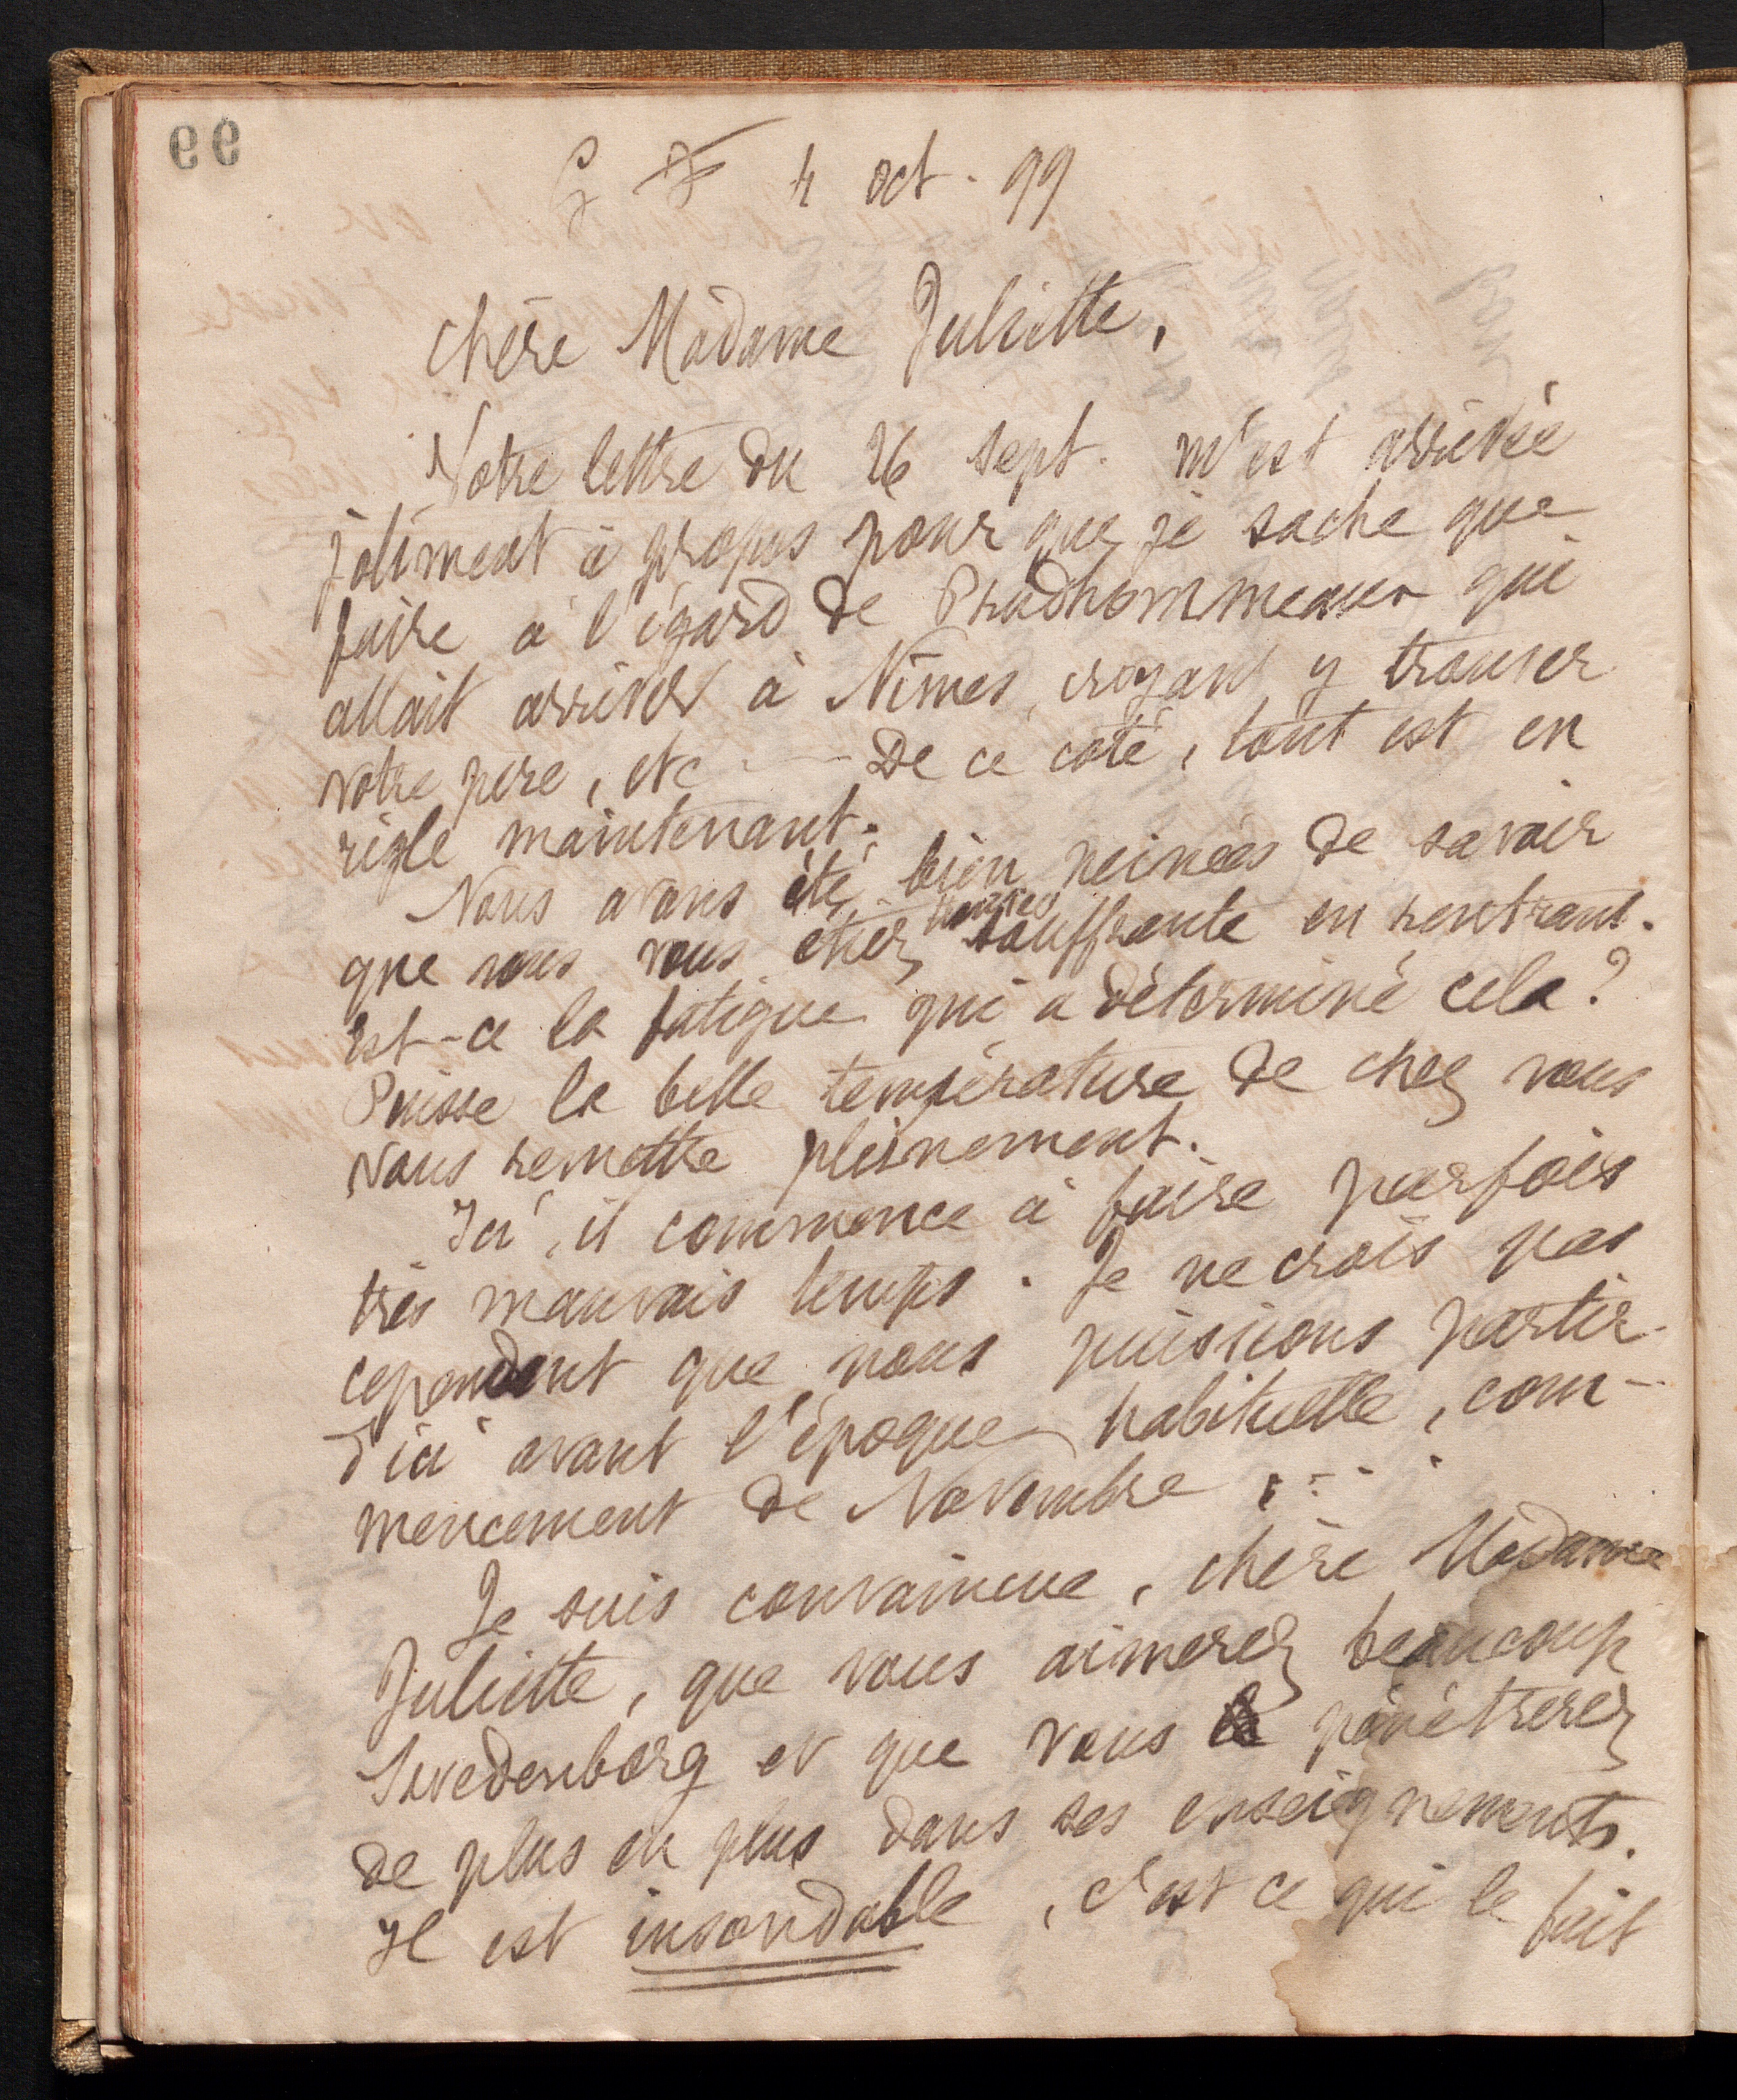 99
G F 4 oct. 99
Chère Madame Juliette,
Votre lettre du 26 sept. m'est arrivée
joliment à propos pour que je sache que
faire à l'égard de Prudhommeaux qui
allait arriver à Nîmes, croyant y trouver
votre père, etc — De ce côté, tout est en
règle maintenant.
Nous avons été bien peinées de savoir
que vous vous étiez trouvée souffrante en rentrant.
Est-ce la fatigue qui a déterminé cela?
Puisse la belle température de chez vous
vous remettre pleinement.
Ici, il commence à faire parfois
très mauvais temps. Je ne crois pas
cependant que nous puissions partir
d'ici avant l'époque habituelle, com-
mencement de Novembre ....
Je suis convaincue, chère Madame
Juliette, que vous aimerez beaucoup
Swedenborg et que vous pénétrerez
de plus en plus dans ses enseignements.
Il est insondable, c'est ce qui le fait